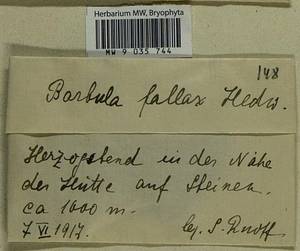 Herbarium MW, Bryophyta
MW 9 035 744
148
Barbula fallax Hedw.
Herzogstand in der Nähe
der Hütte auf Steinen.
ca 1600 m.
7 VI 1917.
leg. S.